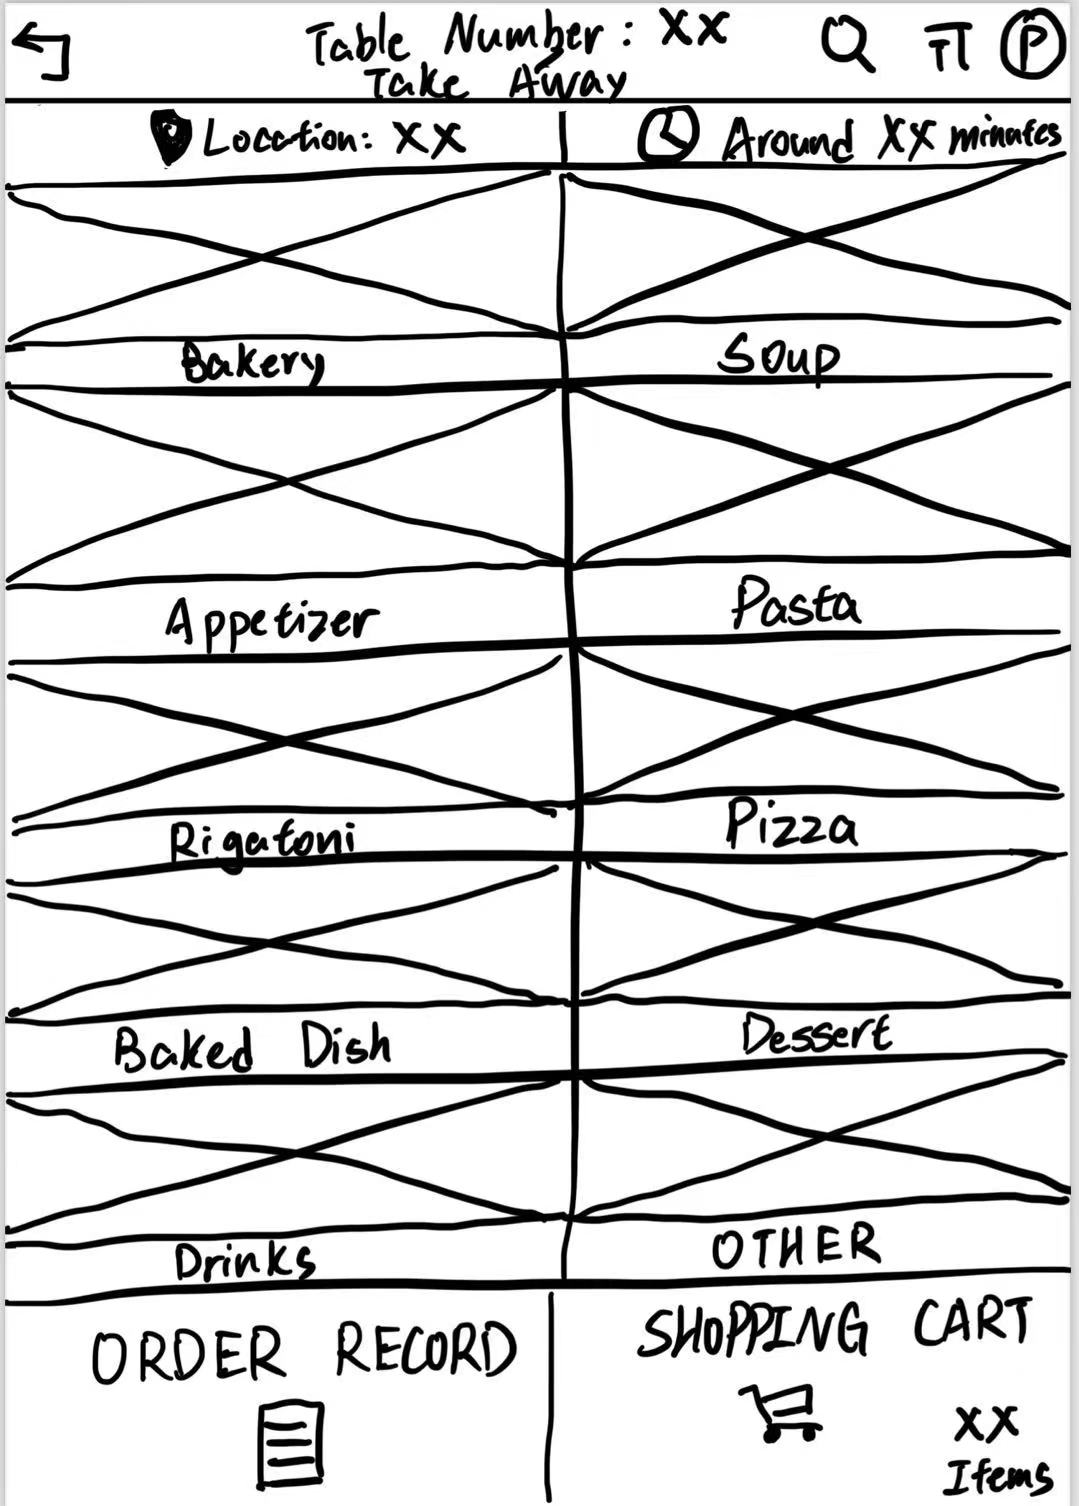 Table Number: XX
Take Away
TT
P
Location: XX
Around XX minutes
Bakery
Soup
Appetizer
Pasta
Rigatoni
Pizza
Baked Dish
Dessert
Drinks
OTHER
ORDER RECORD
SHOPPING CART
XX
Items